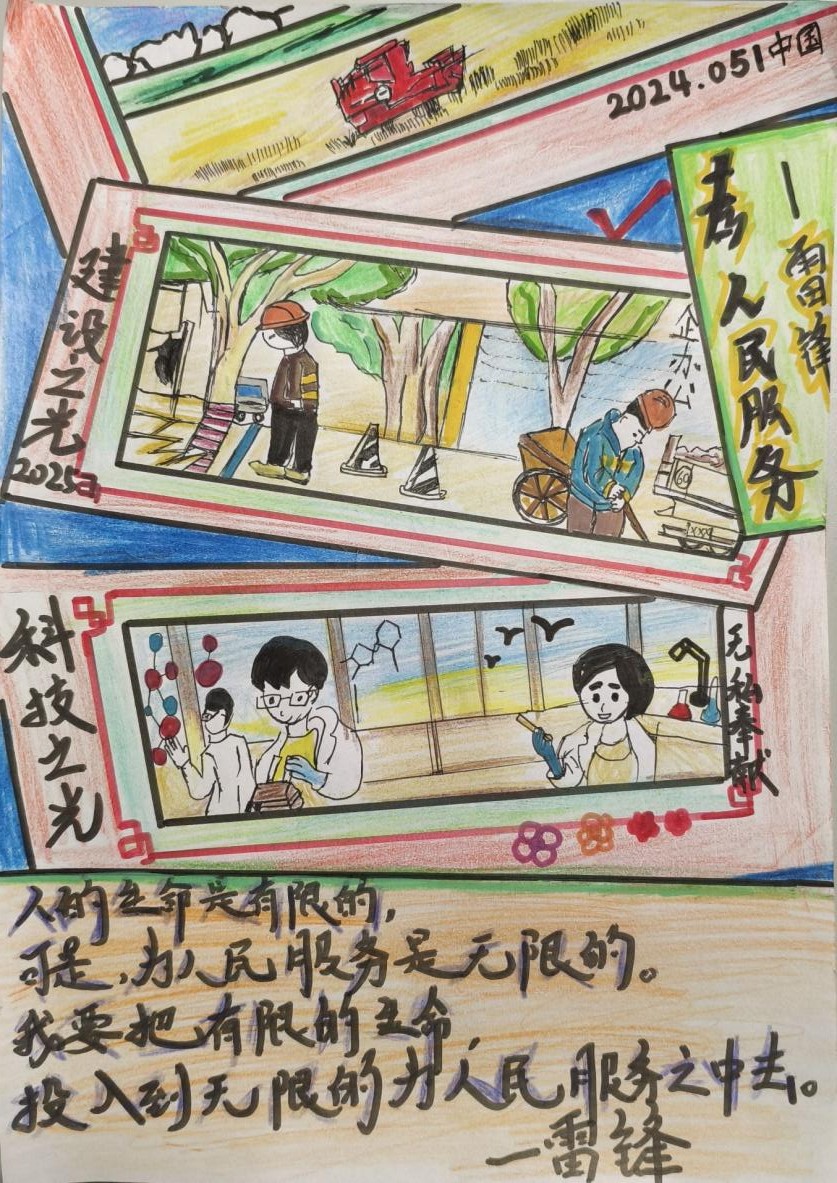 2024.051中国
为人民服务
一雷锋
建设之光
2025
企办公
60
科技之光
无私奉献
人的生命是有限的,
可是,为人民服务是无限的。
我要把有限的生命,
投入到无限的为人民服务之中去。
一雷锋